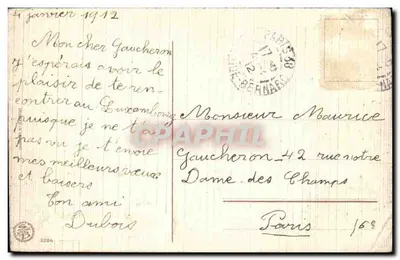 4 janvier 1912
Mon cher Gaucheron
J'espérais avoir le
plaisir de te ren-
contrer au Luxembourg
puisque je ne t'ai
pas vu je t'envoie
mes meilleurs vœux
et baisers
Ton ami
Dubois
PARIS 68
BERNARD
Monsieur Maurice
Gaucheron 42 rue notre
Dame des Champs
Paris